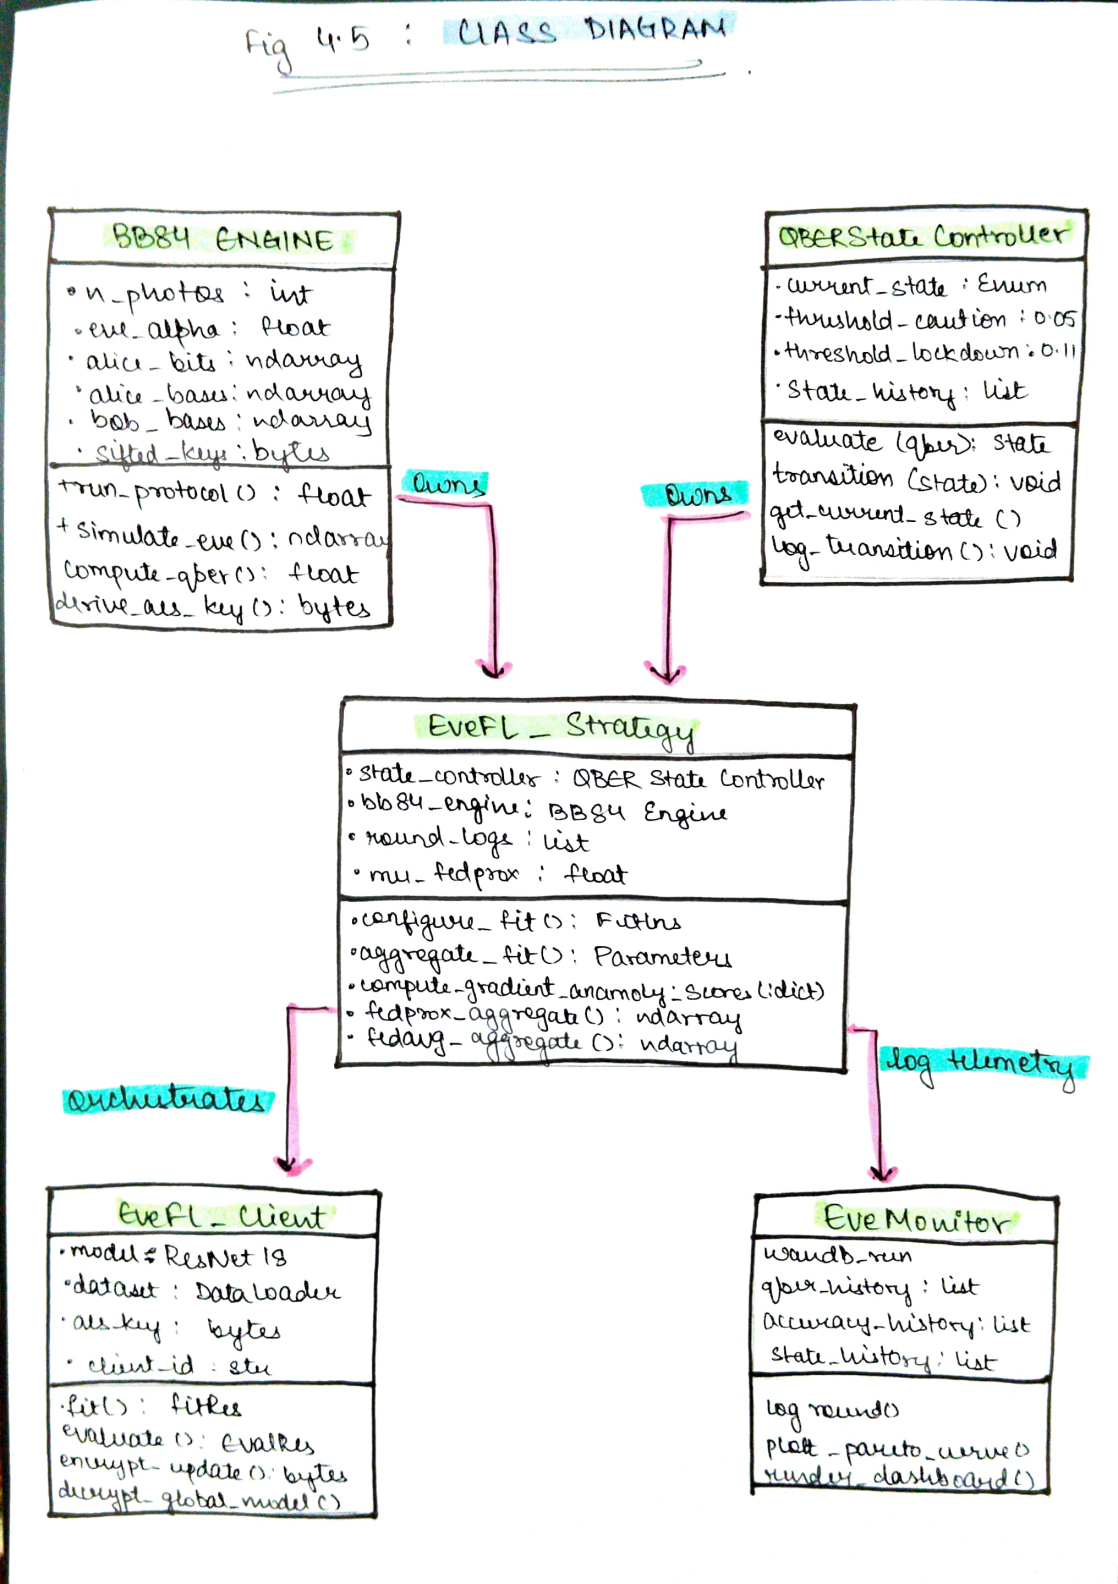 Fig 4.5 : CLASS DIAGRAM
BB84 ENGINE
• n_photos : int
• eve_alpha : float
• alice_bits : ndarray
• alice_bases : ndarray
• bob_bases : ndarray
• sifted_keys : bytes
+run_protocol() : float
+ simulate_eve() : ndarray
compute_qber() : float
derive_aes_key() : bytes
owns
QBERState Controller
• current_state : Enum
• threshold_caution : 0.05
• threshold_lockdown : 0.11
• State_history : list
evaluate (qber) : state
transition (state) : void
get_current_state ()
log_transition() : void
owns
EveFL_Strategy
• state_controller : QBER State Controller
• bb84_engine : BB84 Engine
• round_logs : list
• mu_fedprox : float
• configure_fit() : FitIns
• aggregate_fit() : Parameters
• compute_gradient_anamoly_scores(:dict)
• fedprox_aggregate() : ndarray
• fedavg_aggregate () : ndarray
orchestrates
log telemetry
EveFL_Client
• model : ResNet 18
• dataset : DataLoader
• aes_key : bytes
• client_id : str
• fit() : fitRes
evaluate () : EvalRes
encrypt_update() : bytes
decrypt_global_model()
Eve Monitor
wandb_run
qber_history : list
accuracy_history : list
state_history : list
log round()
plot_pareto_curve()
render_dashboard()